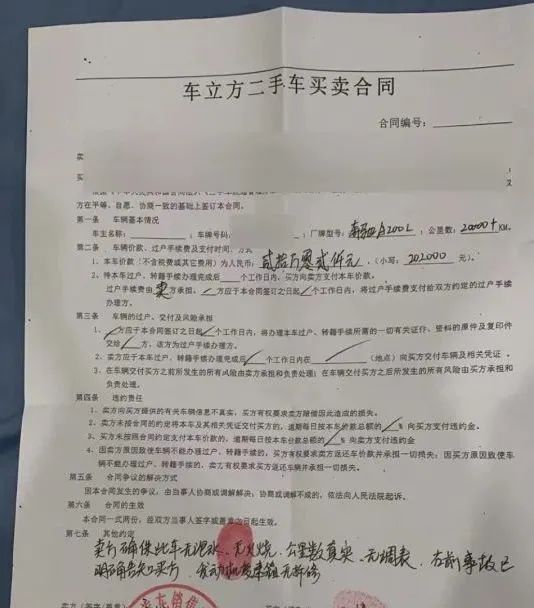 车立方二手车买卖合同
合同编号：
卖
买
方在平等、自愿、协商一致的基础上签订本合同。
第一条 车辆基本情况
车主名称： ；车牌号码： ；厂牌型号：奔驰A200L；公里数：20000+KM。
第二条 车辆价款、过户手续费及支付时间、方式
1、本车价款（不含税费或其它费用）为人民币：贰拾万零贰仟元，（小写：202000 元）。
2、待本车过户、转籍手续办理完成后 个工作日内，买方向卖方支付本车价款。
过户手续费由卖承担。 方应于本合同签订之日起 个工作日内，将过户手续费支付给双方约定的过户手续
办理方。
第三条 车辆的过户、交付及风险承担
1、 方应于本合同签订之日起 个工作日内，将办理本车过户、转籍手续所需的一切有关证件、资料的原件及复印件
交给 方，该方为过户手续办理方。
2、卖方应于本车过户、转籍手续办理完成后 个工作日内在 （地点）向买方交付车辆及相关凭证。
3、在车辆交付买方之前所发生的所有风险由卖方承担和负责处理；在车辆交付买方之后所发生的所有风险由买方承担和
负责处理。
第四条 违约责任
1、卖方向买方提供的有关车辆信息不真实，买方有权要求卖方赔偿因此造成的损失。
2、卖方未按合同的约定将本车及其相关凭证交付买方的，逾期每日按本车价款总额的 %向买方支付违约金。
3、买方未按照合同约定支付本车价款的，逾期每日按本车价款总额的 %向卖方支付违约金
4、因卖方原因致使车辆不能办理过户、转籍手续的，买方有权要求卖方返还车价款并承担一切损失；因买方原因致使车
辆不能办理过户、转籍手续的，卖方有权要求买方返还车辆并承担一切损失。
第五条 合同争议的解决方式
因本合同发生的争议，由当事人协商或调解解决；协商或调解不成的，依法向人民法院起诉。
第六条 合同的生效
本合同一式两份，经双方当事人签字或盖章之日起生效。
第七条 其他约定
卖方确保此车无泡水、无火烧、公里数真实、无调表、 事故已
明确告知买方，发动机变速箱无拆修
卖方（签字/盖章）